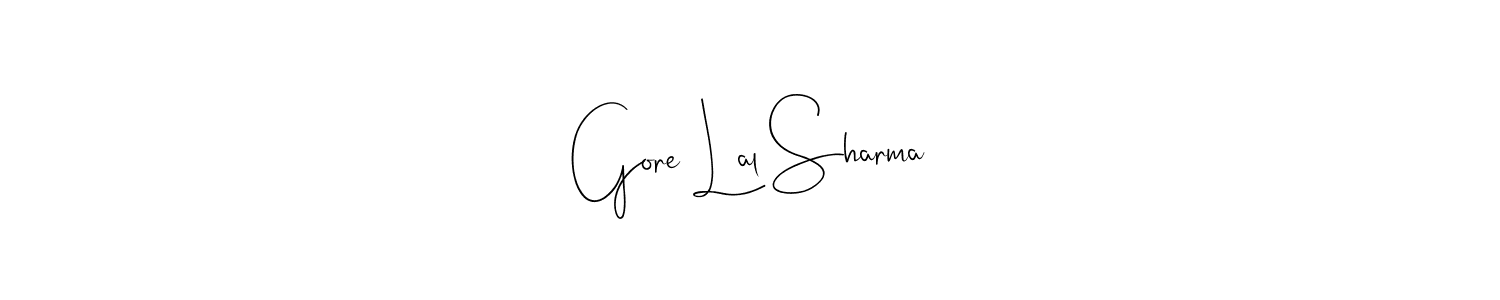 Gore Lal Sharma